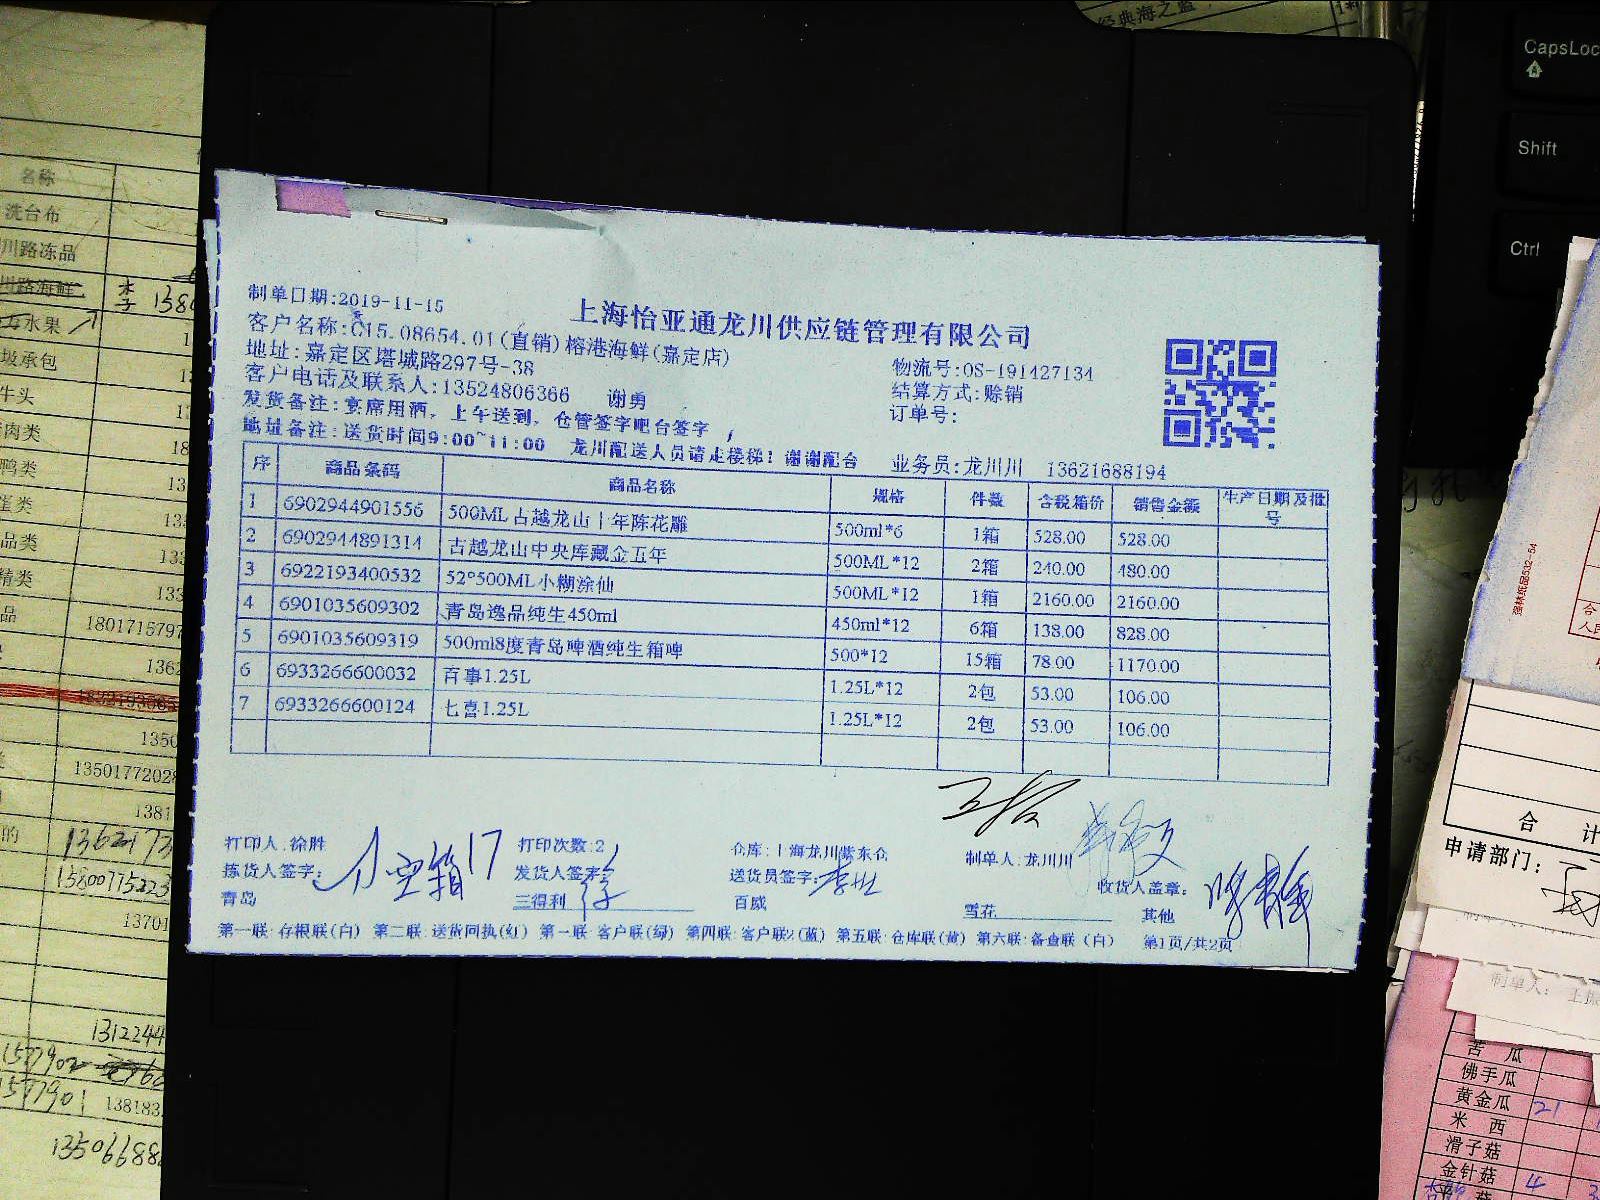 制单日期:2019-11-15
上海怡亚通龙川供应链管理有限公司
客户名称:C15.08654.01(直销)榕港海鲜(嘉定店)
地址:嘉定区塔城路297号-38
物流号:OS-191427134
客户电话及联系人:13524806366 谢勇
结算方式:赊销
发货备注:宴席用酒,上午送到,仓管签字吧台签字
订单号:
地址备注:送货时间9:00~11:00 龙川配送人员请走楼梯!谢谢配合
业务员:龙川川 13621688194
序 商品条码 商品名称 规格 件数 含税箱价 销售金额 生产日期及批号
1 6902944901556 500ML古越龙山十年陈花雕 500ml*6 1箱 528.00 528.00
2 6902944891314 古越龙山中央库藏金五年 500ML*12 2箱 240.00 480.00
3 6922193400532 52°500ML小糊涂仙 500ML*12 1箱 2160.00 2160.00
4 6901035609302 青岛逸品纯生450ml 450ml*12 6箱 138.00 828.00
5 6901035609319 500ml8度青岛啤酒纯生箱啤 500*12 15箱 78.00 1170.00
6 6933266600032 百事1.25L 1.25L*12 2包 53.00 106.00
7 6933266600124 七喜1.25L 1.25L*12 2包 53.00 106.00
打印人:徐胜 打印次数:2 仓库:上海龙川紫东仓 制单人:龙川川
拣货人签字: 空箱17 发货人签字: 送货员签字: 收货人盖章:
青岛 三得利 百威 雪花 其他
第一联:存根联(白) 第二联:送货回执(红) 第三联:客户联(绿) 第四联:客户联2(蓝) 第五联:仓库联(黄) 第六联:备查联(白) 第1页/共2页
名称
洗台布
川路冻品
川路海鲜
水果
承包
牛头
肉类
鸭类
品类
精类
品
1801715797
13501772028
15800775223
1312244
138183
CapsLoc
Shift
Ctrl
经典海之蓝
合 计
申请部门:
制单人:
苦 瓜
佛手瓜
黄金瓜 21
米 西
滑子菇
金针菇 4